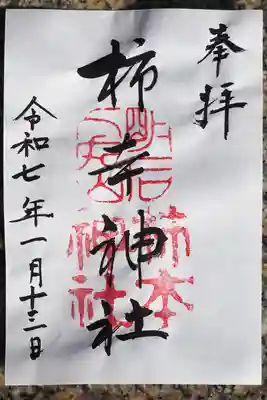 奉拝
柿本神社
令和七年一月十三日
明石
柿本
神社